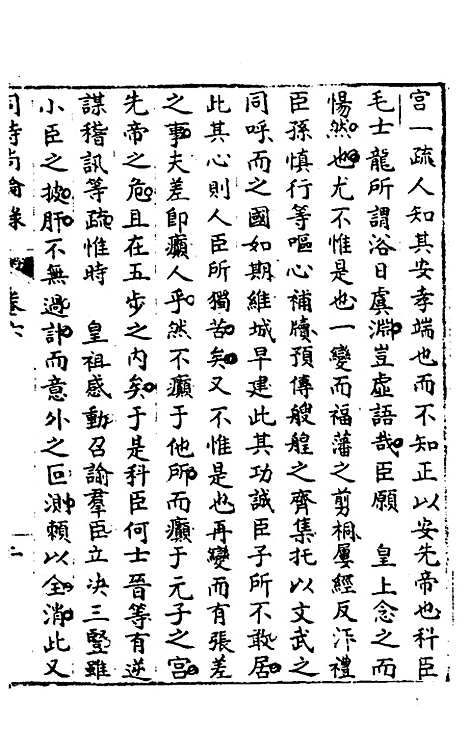 宫一疏人知其安孝端也而不知正以安先帝也科臣
毛士龍所謂浴日虞淵豈虚語哉臣願　皇上念之而
惕然也尤不惟是也一變而福藩之剪桐屢經反汗禮
臣孫慎行等嘔心補牘預傳艘艎之齊集托以文武之
同呼而之國如期維城早建此其功誠臣子所不敢居
此其心則人臣所獨苦矣又不惟是也再變而有張差
之事夫差即癲人乎然不癲于他所而癲于元子之宫
先帝之危且在五步之内矣于是科臣何士晉等有逆
謀稽訊等疏惟時　皇祖感動召諭羣臣立决三豎雖
小臣之披肝不無過計而意外之叵測賴以全消此又
同時尚論錄　卷六　二